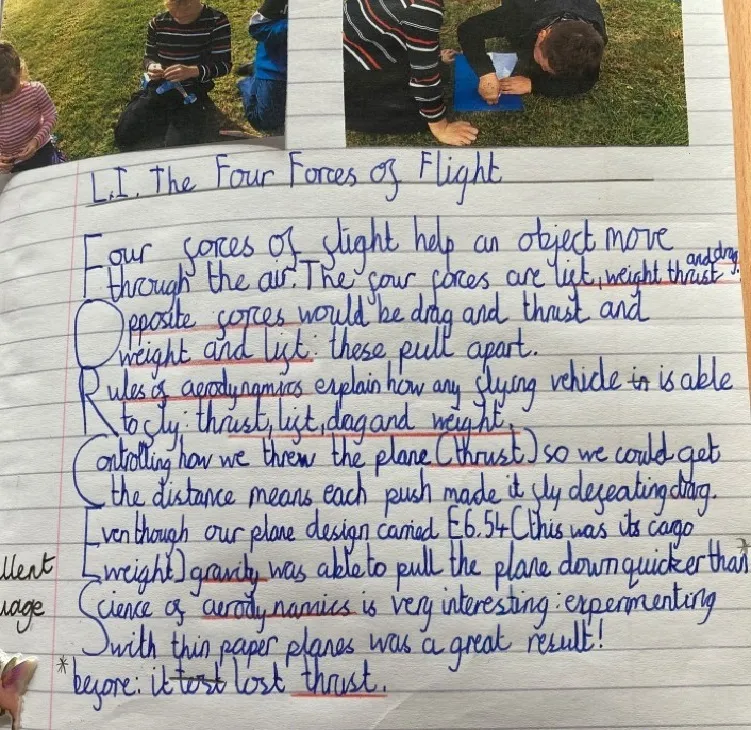 L.I. The Four Forces of Flight
Four forces of flight help an object move
and drag.
through the air. The four forces are lift, weight, thrust
Opposite forces would be drag and thrust and
weight and lift: these pull apart.
Rules of aerodynamics explain how any flying vehicle in is able
to fly: thrust, lift, dag and weight.
Controlling how we threw the plane (thrust) so we could get
the distance means each push made it fly defeating drag.
Even though our plane design carried £6.54 (this was its cago
llent
weight) gravity was able to pull the plane down quicker than *
uage
Science of aerodynamics is very interesting: expermenting
with thin paper planes was a great result!
* before: it tost lost thrust.